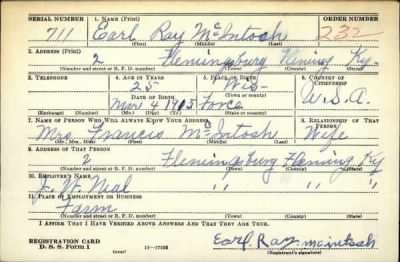 SERIAL NUMBER 1. NAME (Print) ORDER NUMBER
711 Earl Ray McIntosh 232
(First) (Middle) (Last)
2. ADDRESS (Print)
2 Flemingsburg Fleming Ky.
(Number and street or R. F. D. number) (Town) (County) (State)
3. TELEPHONE 4. AGE IN YEARS 5. PLACE OF BIRTH 6. COUNTRY OF CITIZENSHIP
25 Wis
(Town or county)
DATE OF BIRTH U.S.A.
Mar 4 1915
(Exchange) (Number) (Mo.) (Day) (Yr.) (State or country)
7. NAME OF PERSON WHO WILL ALWAYS KNOW YOUR ADDRESS 8. RELATIONSHIP OF THAT PERSON
Mrs. Francis McIntosh Wife
(Mr., Mrs., Miss) (First) (Middle) (Last)
9. ADDRESS OF THAT PERSON
2 Flemingsburg Fleming Ky
(Number and street or R. F. D. number) (Town) (County) (State)
10. EMPLOYER'S NAME
J. W. Neal " " "
11. PLACE OF EMPLOYMENT OR BUSINESS
Farm
(Number and street or R. F. D. number) (Town) (County) (State)
I AFFIRM THAT I HAVE VERIFIED ABOVE ANSWERS AND THAT THEY ARE TRUE.
REGISTRATION CARD
D. S. S. Form 1 (over) Earl Ray McIntosh
(Registrant's signature)